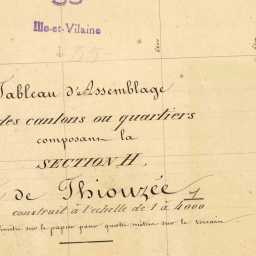 Ille-et-Vilaine
Tableau d'Assemblage
des cantons ou quartiers
composant la
SECTION H,
de Thiouzée
construit à l'échelle de 1 à 4000
sur le papier pour quatre mètres sur le terrain